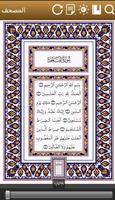 المصحف
سورة الفاتحة
بسم الله الرحمن الرحيم
الحمد لله رب العالمين
الرحمن الرحيم ملك يوم الدين
إياك نعبد وإياك نستعين اهدنا
الصراط المستقيم صراط الذين
أنعمت عليهم غير المغضوب
عليهم ولا الضالين